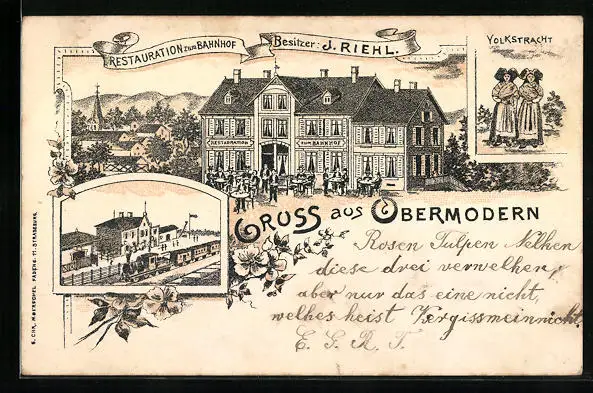 RESTAURATION zum BAHNHOF Besitzer: J. RIEHL.
VOLKSTRACHT
RESTAURATION ZUM BAHNHOF
GRUSS aus OBERMODERN
Rosen Tulpen Nelken
diese drei verwelken,
aber nur das eine nicht,
welches heist Vergissmeinnicht.
E. G. R. T.
STRASSBURG